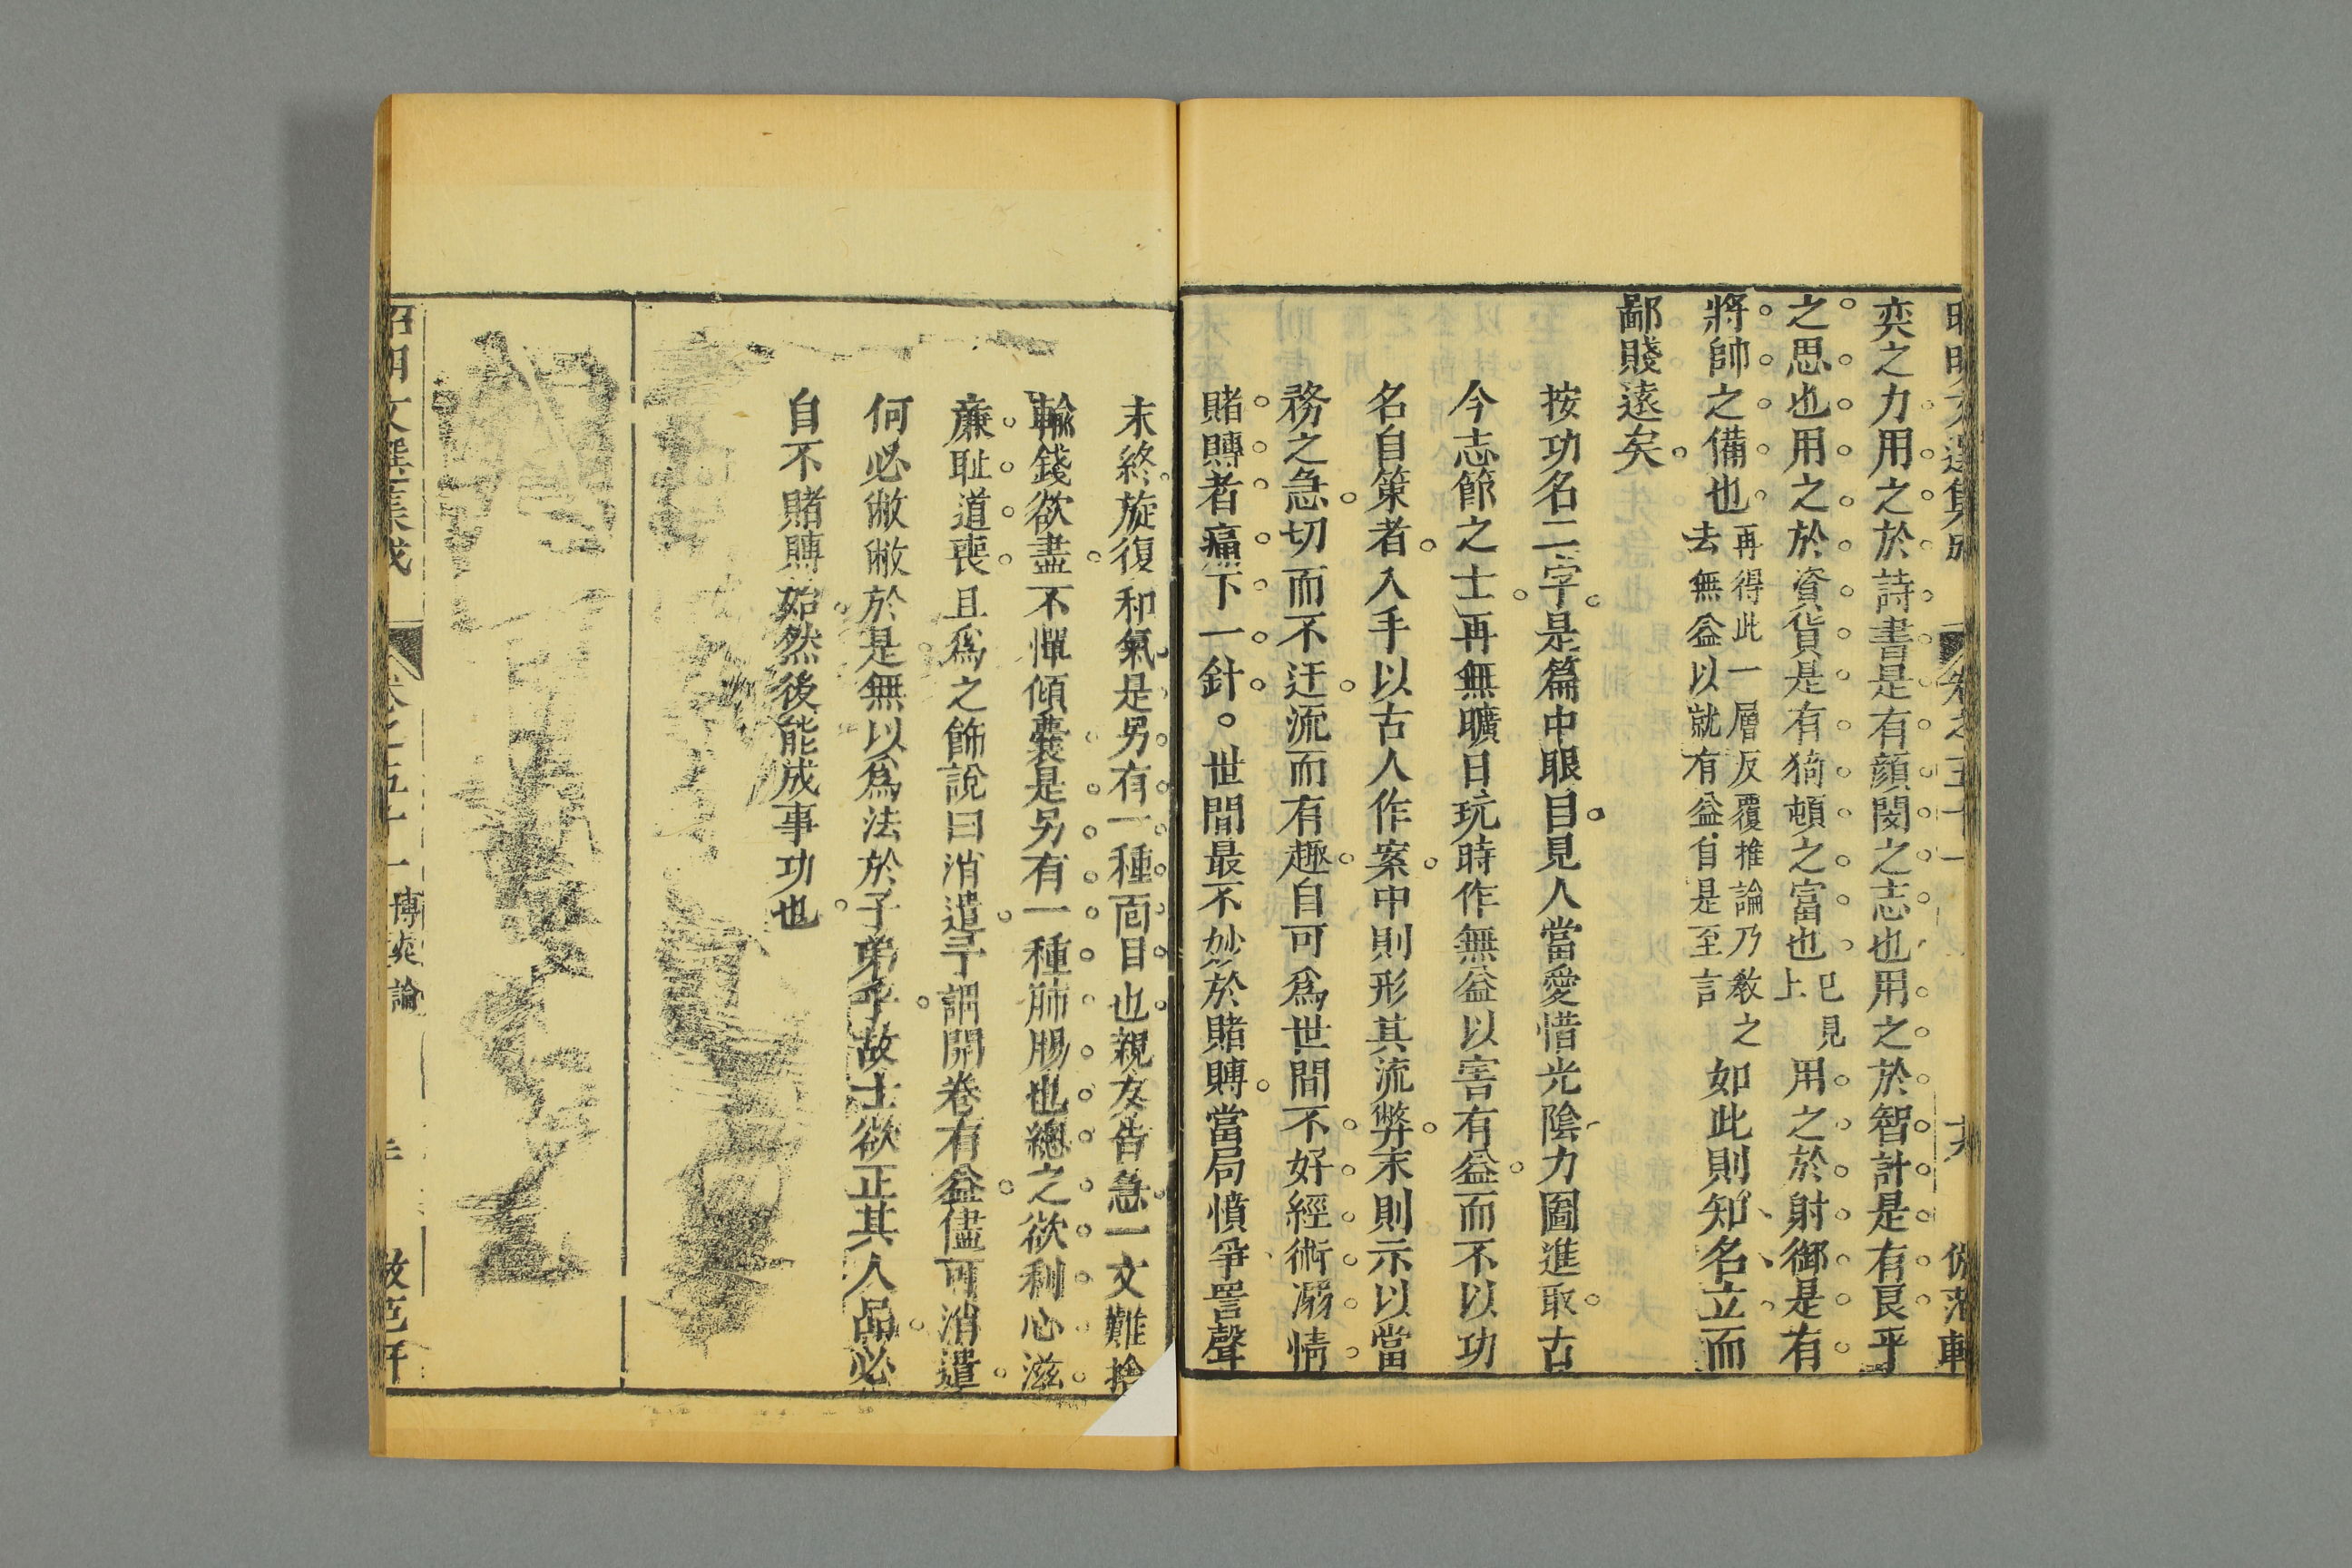 奕之力用之於詩書是有顔閔之志也用之於智計是有良平
之思也用之於資貨是有猗頓之富也已見上用之於射御是有
將帥之備也再得此一層反覆推論乃教之去無益以就有益自是至言如此則知名立而
鄙賤遠矣
按功名二字是篇中眼目見人當愛惜光陰力圖進取古
今志節之士再無曠日玩時作無益以害有益而不以功
名自策者入手以古人作案中則形其流弊末則示以當
務之急切而不迂流而有趣自可爲世間不好經術溺情
賭賻者痛下一針。世間最不妙於賭賻當局憤爭詈聲
末終旋復和氣是另有一種面目也親友告急一文難捨
輸錢欲盡不憚傾囊是另有一種肺腸也總之欲利心滋
廉耻道喪且爲之飾說曰消遣予謂開卷有益儘可消遣
何必敝敝於是無以爲法於子弟乎故士欲正其人品必
自不賭賻始然後能成事功也
昭明文選集成
卷之五十一
博奕論